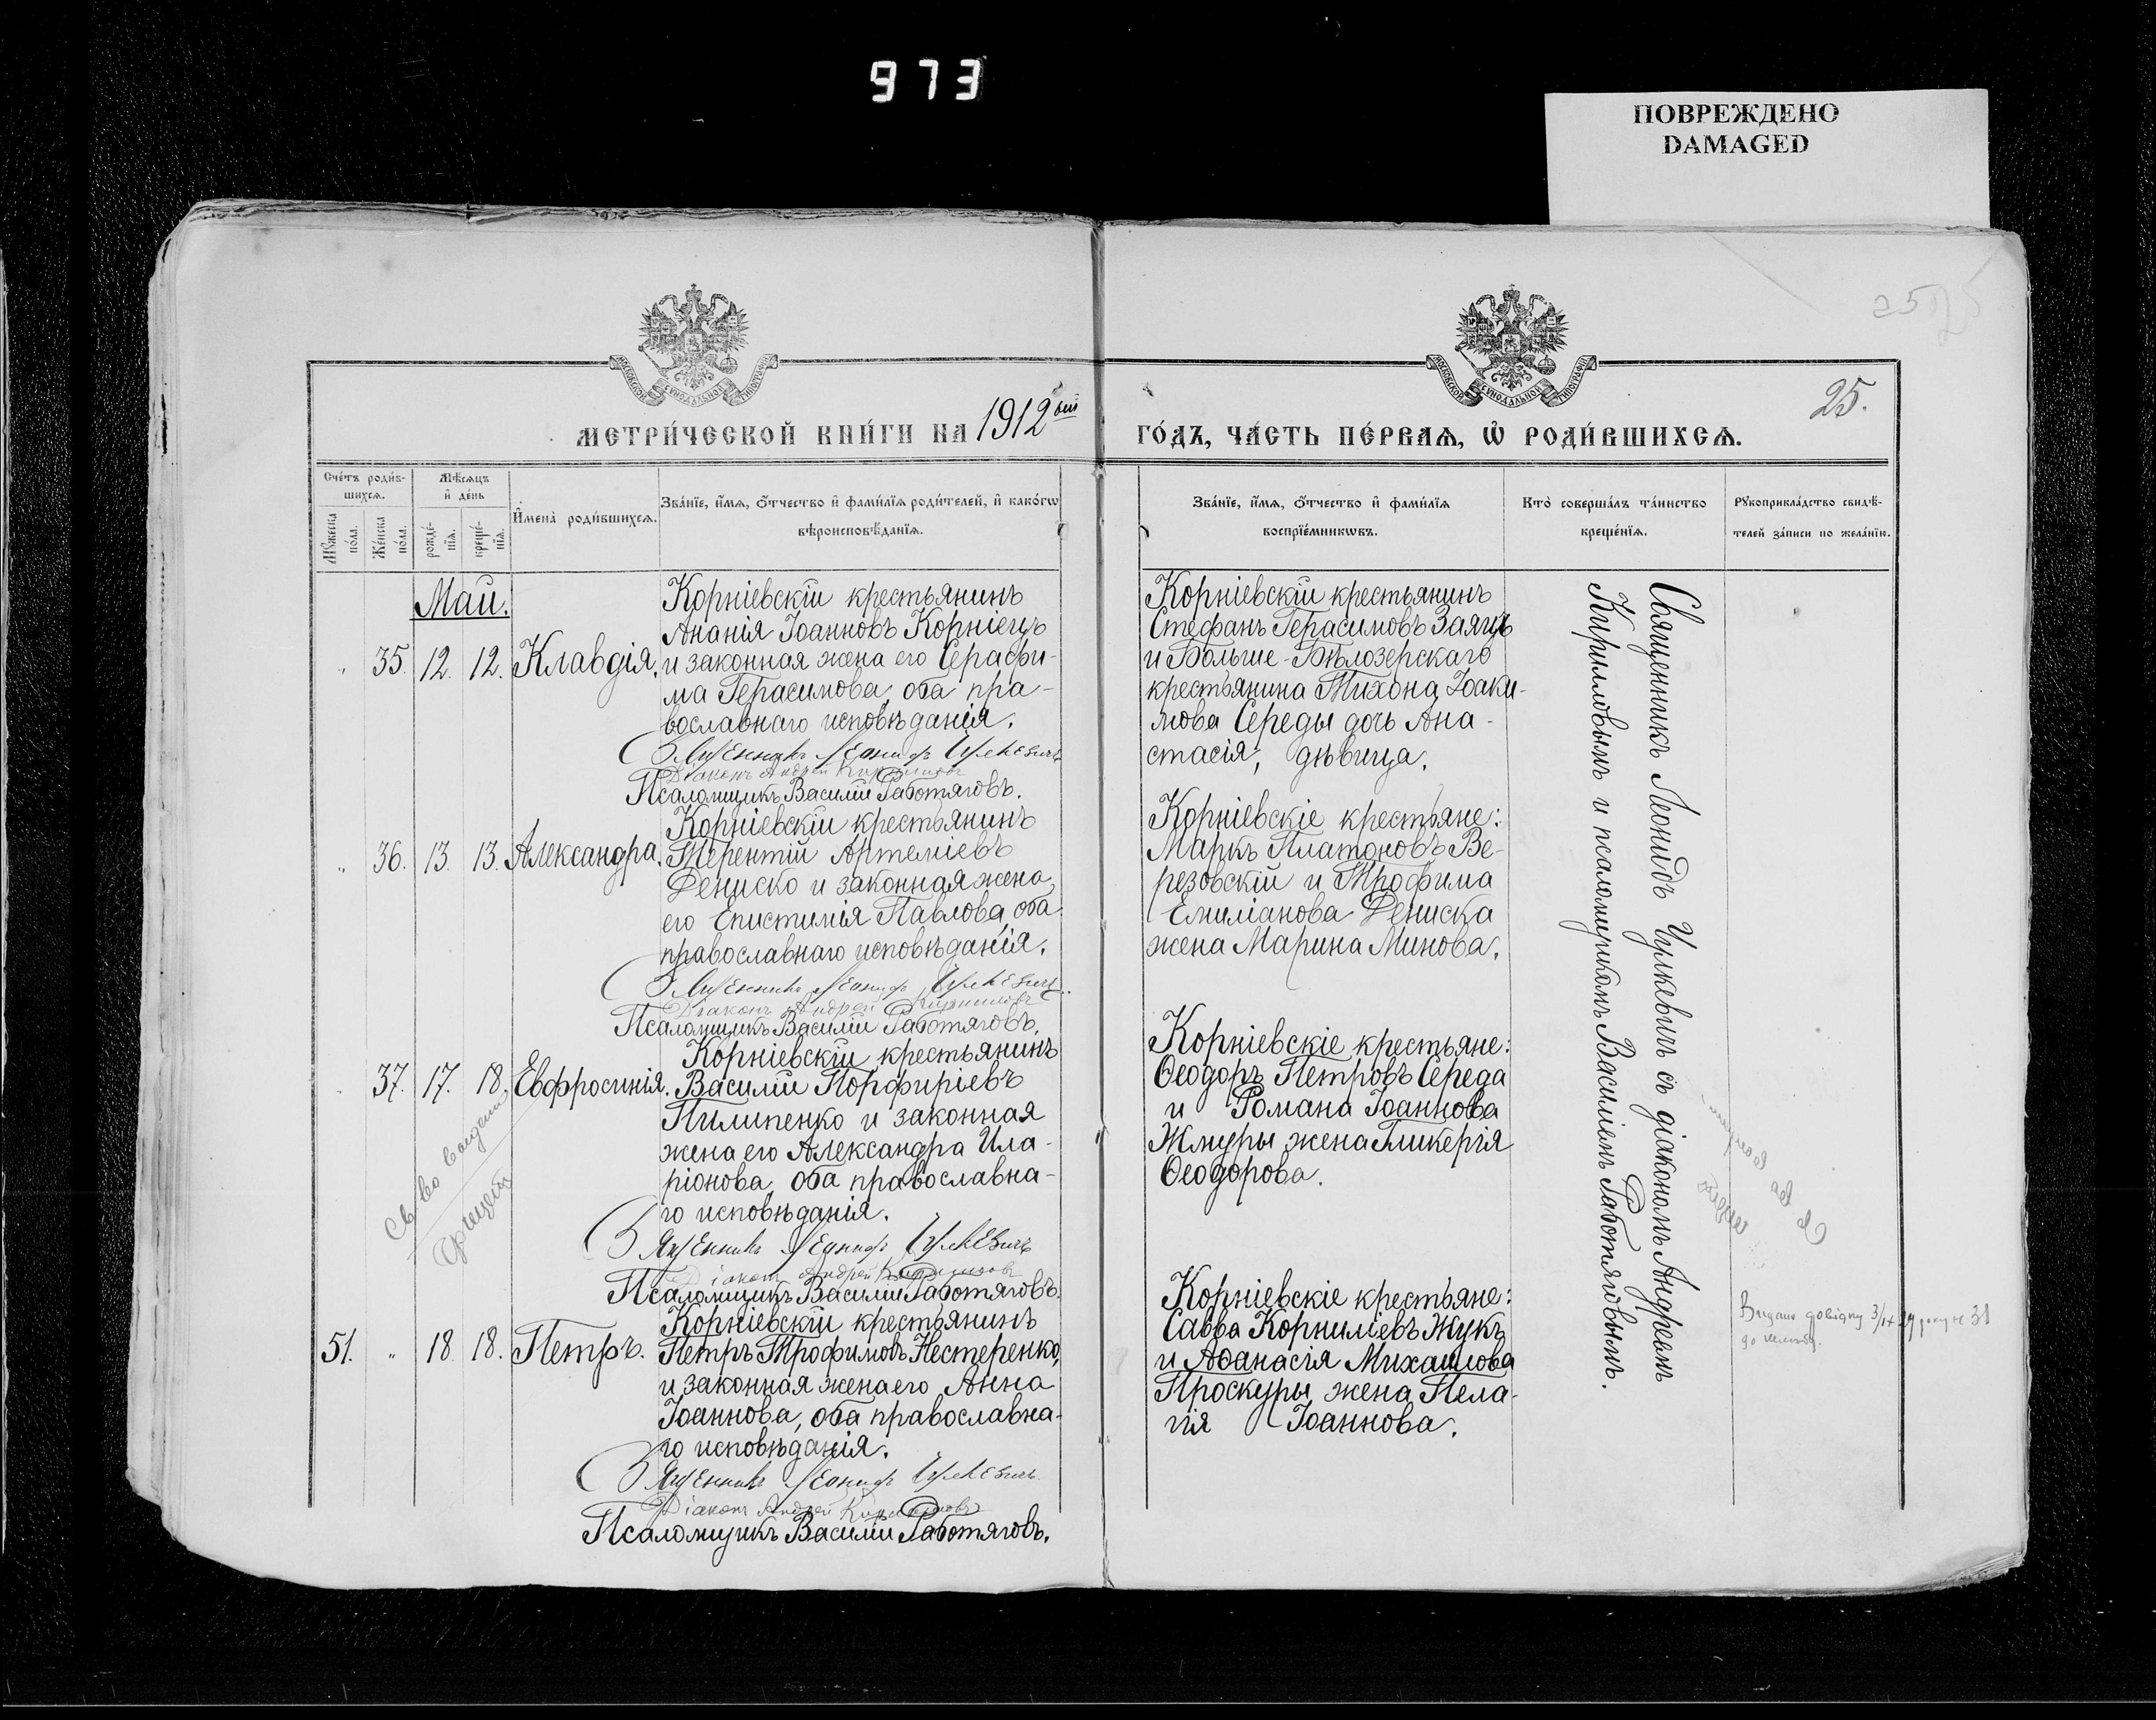 973
ПОВРЕЖДЕНО
DAMAGED
25.
МЕТРИ́ЧЕСКОЙ КНИ́ГИ НА 1912 ый ГО́ДЪ, ЧА́СТЬ ПЕ́РВАѦ, Ѡ҆ РОДИ́ВШИХСѦ.
МОСКОВСКОЙ СѴНОДАЛЬНОЙ ТИПОГРАФІИ
МОСКОВСКОЙ СѴНОДАЛЬНОЙ ТИПОГРАФІИ
Сче́тъ роди́в-
шихсѧ.
Мѹ́жеска по́ла.
Же́нска по́ла.
Мѣ́сѧцъ
и҆ де́нь
рожде́-
нїѧ.
креще́-
нїѧ.
И҆мена̀ роди́вшихсѧ.
Зва́нїе, и҆́мѧ, ѻ҆́тчество и҆ фами́лїѧ роди́телей, и҆ како́гѡ
вѣроисповѣ́данїѧ.
Зва́нїе, и҆́мѧ, ѻ҆́тчество и҆ фами́лїѧ
воспрїе́мникѡвъ.
Кто̀ соверша́лъ та́инство
креще́нїѧ.
Рѹкоприкла́дство свидѣ́-
телей за́писи по жела́нїю.
Май.
„ 35. 12. 12. Клавдія.
Корніевскій крестьянинъ
Ананія Іоанновъ Корніецъ
и законная жена его Серафи-
ма Герасимова, оба пра-
вославнаго исповѣданія.
Священникъ Леонидъ Цулкевичъ
Діаконъ Андрей Кирилловъ
Псаломщикъ Василій Работяговъ.
Корніевскій крестьянинъ
Стефанъ Герасимовъ Заяцъ
и Больше-Бѣлозерскаго
крестьянина Тихона Іоаки-
мова Середы дочь Ана-
стасія, дѣвица.
„ 36. 13. 13. Александра.
Корніевскій крестьянинъ
Терентій Артеміевъ
Дениско и законная жена
его Епистимія Павлова, оба
православнаго исповѣданія.
Священникъ Леонидъ Цулкевичъ
Діаконъ Андрей Кирилловъ
Псаломщикъ Василій Работяговъ.
Корніевскіе крестьяне:
Маркъ Платоновъ Ве-
резовскій и Трофима
Емиліанова Дениска
жена Марина Минова.
„ 37. 17. 18. Евфросинія.
Корніевскій крестьянинъ
Василій Порфиріевъ
Пилипенко и законная
жена его Александра Ила-
ріонова, оба православна-
го исповѣданія.
Священникъ Леонидъ Цулкевичъ
Діаконъ Андрей Кирилловъ
Псаломщикъ Василій Работяговъ.
Корніевскіе крестьяне:
Ѳеодоръ Петровъ Середа
и Романа Іоаннова
Жмуры жена Гликерія
Ѳеодорова.
51. „ 18. 18. Петръ.
Корніевскій крестьянинъ
Петръ Трофимовъ Нестеренко,
и законная жена его Анна
Іоаннова, оба православна-
го исповѣданія.
Священникъ Леонидъ Цулкевичъ
Діаконъ Андрей Кирилловъ
Псаломщикъ Василій Работяговъ.
Корніевскіе крестьяне:
Савва Корниліевъ Жукъ
и Аѳанасія Михаилова
Проскуры жена Пела-
гія Іоаннова.
Священникъ Леонидъ Цулкевичъ съ діакономъ Андреемъ
Кирилловымъ и псаломщикомъ Василіемъ Работяговымъ.
Видано довідку